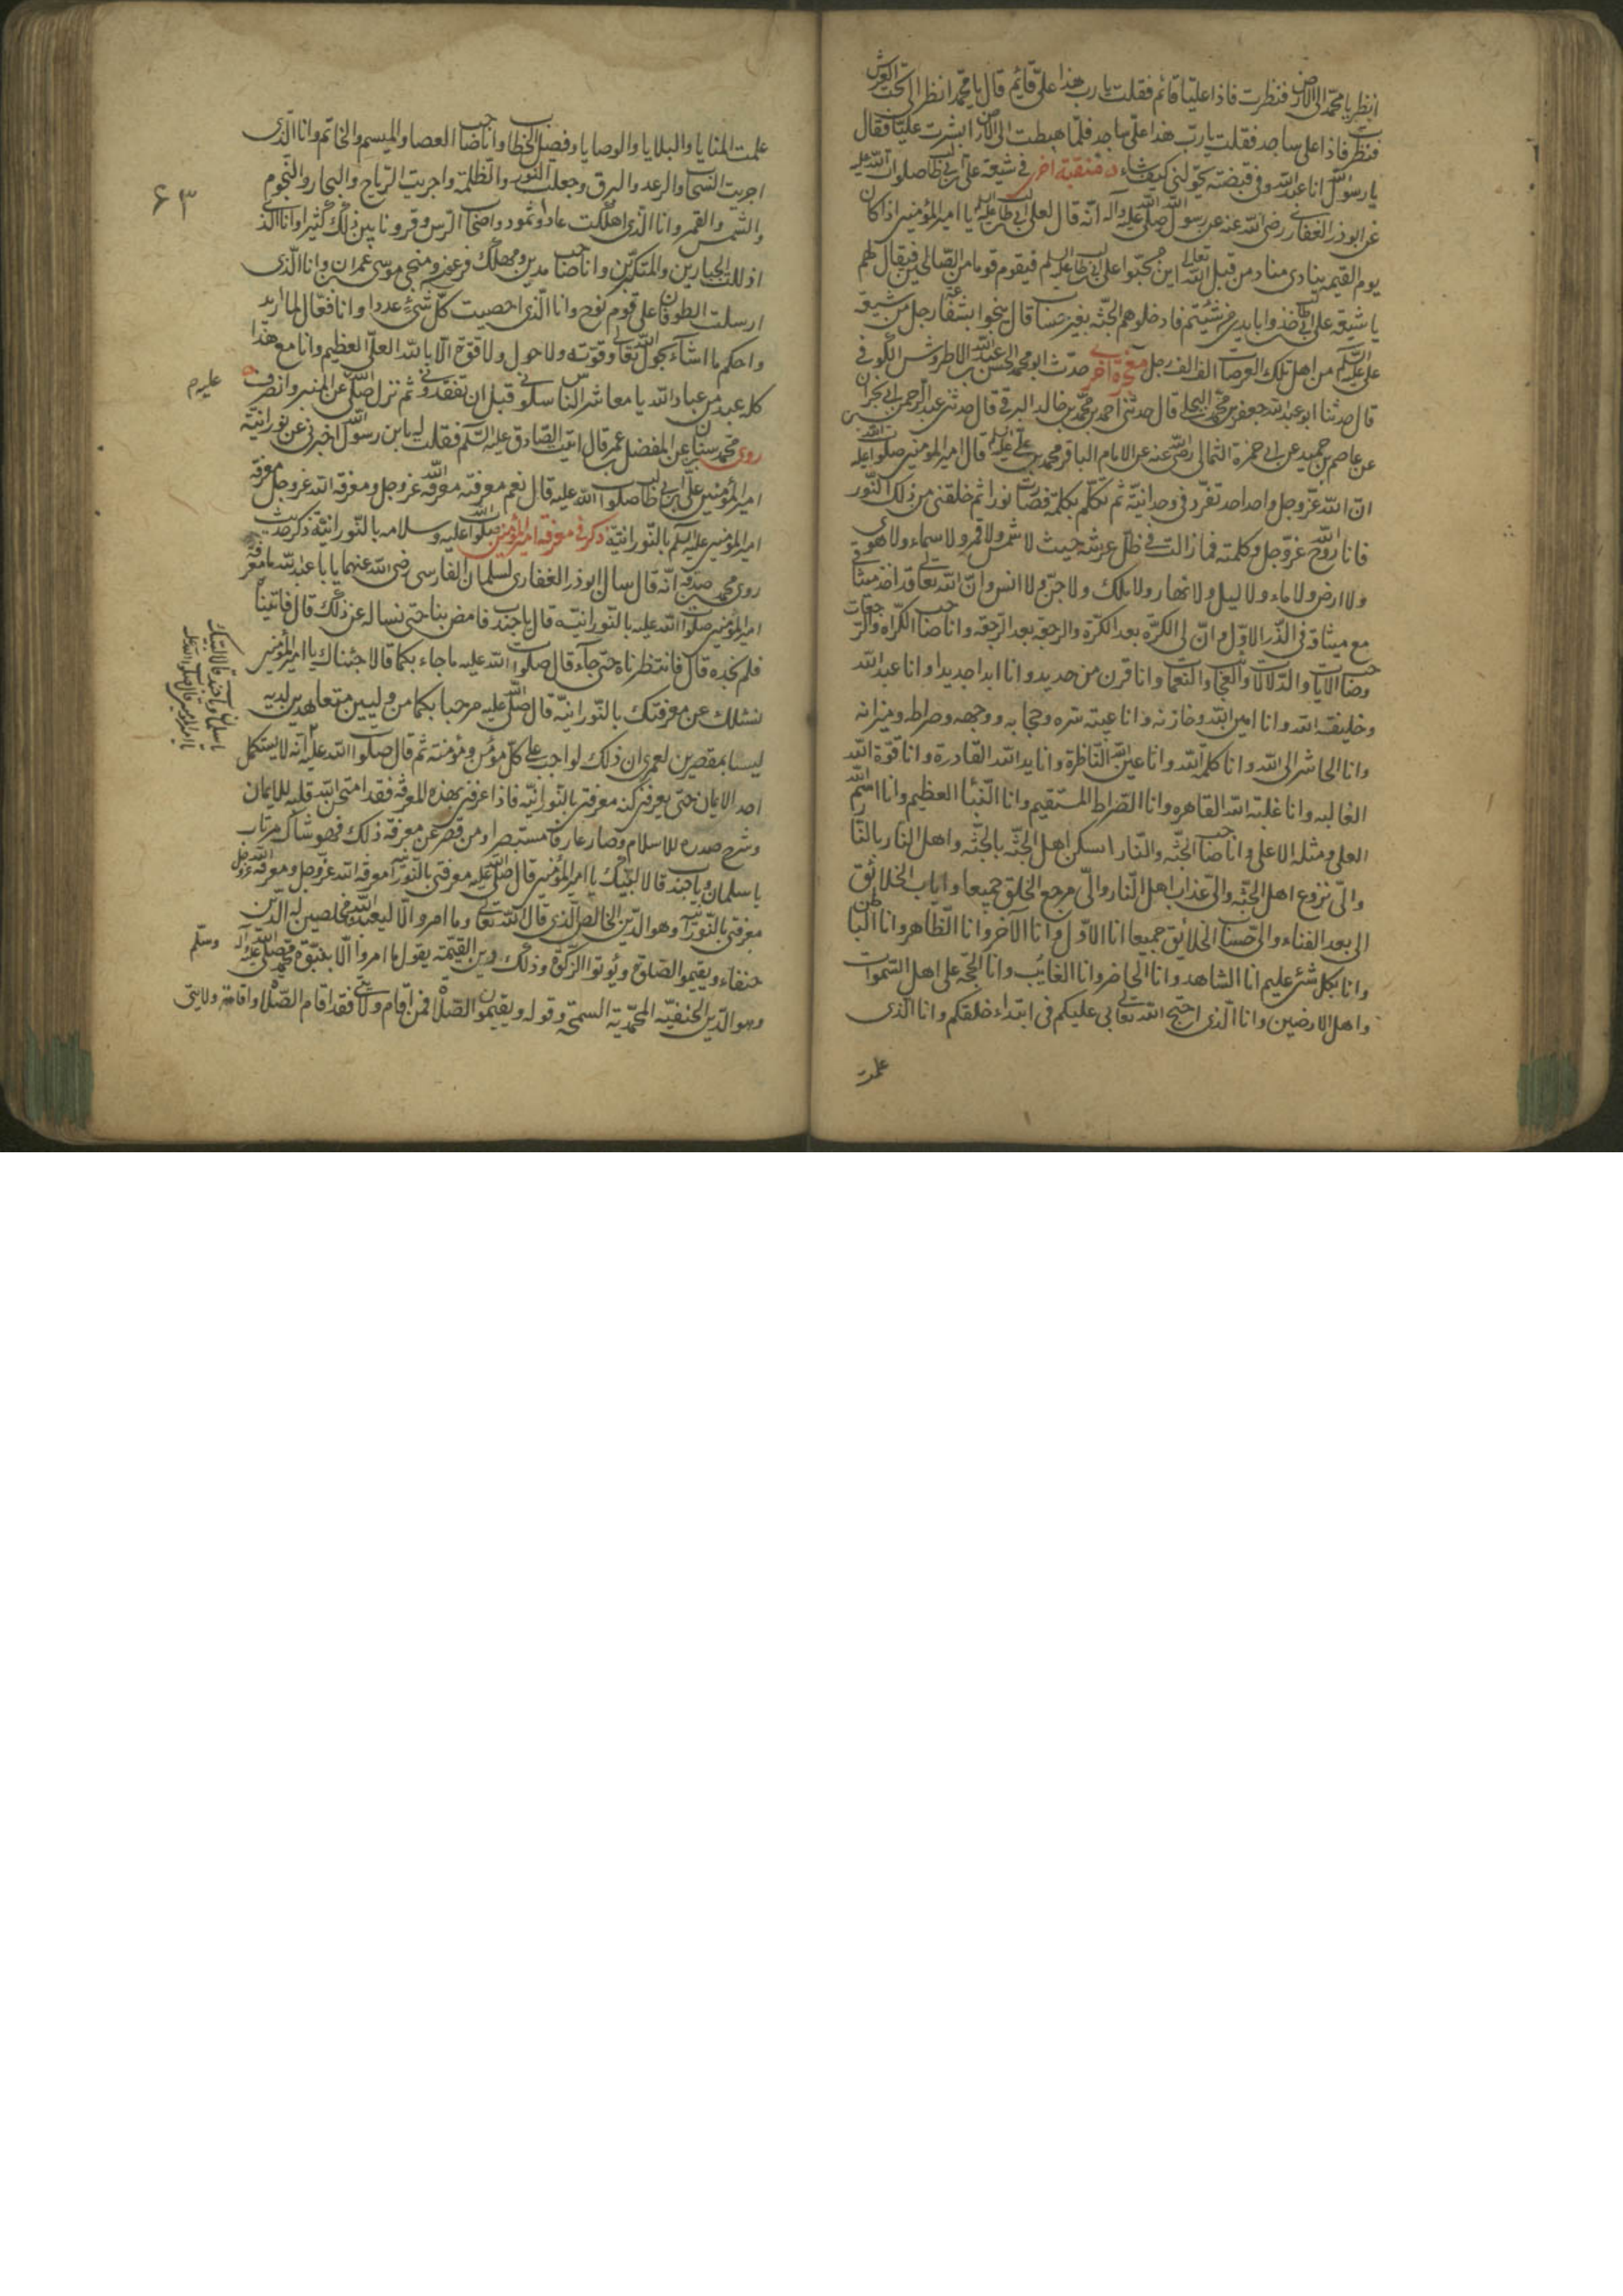 انظر يا محمد الى الارض فنظرت فاذا عليا قائم فقلت يا رب هذا على قايم قال يا محمد انظر الى تحت العرش
فنظرت فاذا على ساجد فقلت يا رب هذا على ساجد فلما هبطت الى الارض ابشرت عليا فقال
يا رسول الله انا عبد الله وفى قبضته يحولنى كيف شاء منقبة اخرى فى شيعة على بن ابى طالب صلوات الله عليه
عن ابو ذر الغفارى رضى الله عنه عن رسول الله صلى الله عليه واله انه قال لعلى بن ابى طالب عليه السلم يا امير المؤمنين اذا كان
يوم القيمه ينادى مناد من قبل الله تعالى اين محبوا على بن ابى طالب عليه السلم فيقوم قوما من الصالحين فيقال لهم
يا شيعة على بن ابى طالب خذوا بايدى من شئتم فادخلوهم الجنه بغير حساب قال ينجوا بشفاعة رجل من شيعة
على عليه السلم من اهل تلك العرصات الف الف رجل معجزة اخرى حدث ابو محمد الحسن بن عبد الله الاطروش الكوفى
قال حدثنا ابو عبد الله جعفر بن محمد البجلى قال حدثنى احمد بن محمد بن خالد البرقى قال حدثنى عبد الرحمن بن ابى نجران
عن عاصم بن حميد عن ابى حمزة الثمالى رضى الله عنه عن الامام الباقر محمد بن على عليه السلم قال امير المؤمنين صلوات الله عليه
ان الله عز وجل واحد احد تفرد فى وحدانيته ثم تكلم بكلمة فصارت نورا ثم خلقنى من ذلك النور
فانا روح الله عز وجل وكلمته فما زالت فى ظل عرشه حيث لا شمس ولا قمر ولا سماء ولا هوى
ولا ارض ولا ماء ولا ليل ولا نهار ولا ملك ولا جن ولا انس وان الله تعالى قد اخذ ميثاقى
مع ميثاقه فى الذر الاول وان لى الكره بعد الكرة والرجعة بعد الرجعة وانا صاحب الكراه والرجعات
وصاحب الايات والدلالات والعجايب والنعمات وانا قرن من حديد وانا ابدا جديدا وانا عبد الله
وخليفة الله وانا امين الله وخازنه وانا عيبته سره وحجابه ووجهه وصراطه وميزانه
وانا الحاشر الى الله وانا كلمة الله وانا عين الله الناظرة وانا يد الله القادرة وانا قوة الله
الغالبه وانا غلبة الله القاهره وانا الصراط المستقيم وانا النبأ العظيم وانا اسم الله
العلى ومثله الاعلى وانا صاحب الجنه والنار اسكن اهل الجنه بالجنه واهل النار بالنار
والى نزوع اهل الجنه والى عذاب اهل النار والى مرجع الخلق جميعا واياب الخلائق
الى بعد الفناء والى حساب الخلائق جميعا انا الاول وانا الاخر وانا الظاهر وانا الباطن
وانا بكل شئ عليم انا الشاهد وانا الحاضر وانا الغائب وانا الحجة على اهل السموات
واهل الارضين وانا الذى احتج الله تعالى بى عليكم فى ابتداء خلقكم وانا الذى
علمت
٤٣
علمت المنايا والبلايا والوصايا وفصل الخطاب وانا صاحب العصا والميسم والخاتم وانا الذى
اجريت السحاب والرعد والبرق وجعلت النور والظلمة واجريت الرياح والبحار والنجوم
والشمس والقمر وانا الذى اهلكت عاد وثمود واصحاب الرس وقرونا بين ذلك كثيرا وانا الذى
اذللت الجبارين والمتكبرين وانا صاحب مدين ومهلك فرعون ومنجى موسى بن عمران وانا الذى
ارسلت الطوفان على قوم نوح وانا الذى احصيت كل شئ عددا وانا فعال لما اريد
واحكم ما اشاء بحول الله تعالى وقوته ولا حول ولا قوة الا بالله العلى العظيم وانا مع هذا
كله عبد من عباد الله يا معاشر الناس سلونى قبل ان تفقدونى ثم نزل صلى الله عن المنبر وانصرف
عليه م
روى محمد سنان عن المفضل عمر قال اتيت الصادق عليه السلم فقلت له يا بن رسول الله اخبرنى عن نورانية
امير المؤمنين على بن ابى طالب صلوات الله عليه قال نعم معرفته معرفة الله عز وجل ومعرفة الله عز وجل معرفة
امير المؤمنين عليه السلم بالنورانية ذكر فى معرفة امير المؤمنين صلوات الله عليه وسلامه بالنورانية ذكر حديث
روى محمد صدقه انه قال سال ابو ذر الغفارى لسلمان الفارسى رضى الله عنهما يا با عبد الله ما معرفة
امير المؤمنين صلوات الله عليه بالنورانية قال يا جندب فامض بنا حتى نساله عن ذلك قال فاتيناه
فلم نجده قال فانتظرناه حتى جاء قال صلوات الله عليه ما جاء بكما قالا جئناك يا امير المؤمنين
نسئلك عن معرفتك بالنورانية قال صلى الله عليه مرحبا بكما من وليين متعاهدين لديه
ليسا بمقصرين لعمرى ان ذلك لواجب على كل مؤمن ومؤمنة ثم قال صلوات الله عليه انه لا يستكمل
يا سلمان ويا جندب قالا لبيك
يا امير المؤمنين قال صلوات الله عليه
احد الايمان حتى يعرفنى كنه معرفتى بالنورانيه فاذا عرفنى بهذه المعرفة فقد امتحن الله قلبه للايمان
وشرح صدره للاسلام وصار عارفا مستبصرا ومن قصر عن معرفة ذلك فهو شاك مرتاب
يا سلمان ويا جندب قالا لبيك يا امير المؤمنين قال صلى الله عليه معرفتى بالنورانية معرفة الله عز وجل ومعرفة الله عز وجل
معرفتى بالنورانية وهو الدين الخالص الذى قال الله تعالى وما امروا الا ليعبدوا الله مخلصين له الدين
حنفاء ويقيموا الصلوة ويؤتوا الزكوة وذلك دين القيمة يقول ما امروا الا بنبوة محمد صلى الله عليه واله وسلم
وهو الدين الحنفيه المحمدية السمحة وقوله ويقيمون الصلاة فمن اقام ولايتى فقد اقام الصلاة واقامة ولايتى